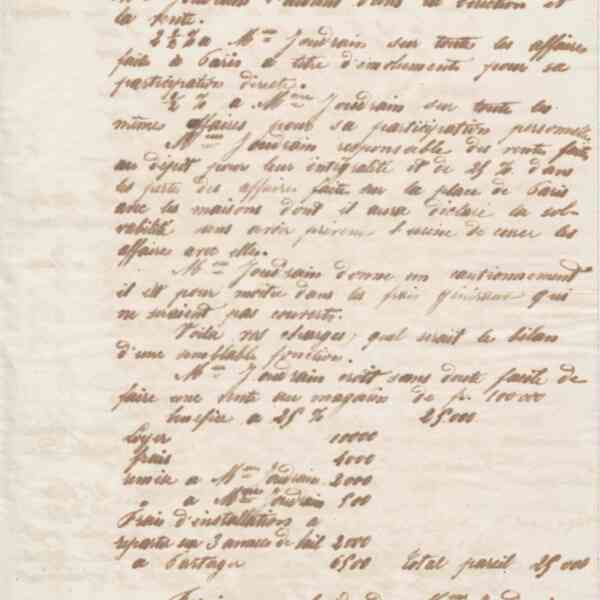 la vente.
2 ½ % a Mr Joudrain sur toutes les affaires
faite à Paris a titre d'émoluments pour sa
participation directe.
½ % a Mme Joudrain sur toute les
mêmes affaires pour sa participation personnelle
Mr Joudrain responsible des vente faite
au dépôt pour leur intégralité et de 25 % dans
les perte des affaires faite sur la place de Paris
avec les maisons dont il aura déclaré la sol-
vabilité sans avoir prévenu l'usine de cesser les
affaire avec elle.
Mr Joudrain donne un cautionnement
il est pour moitié dans les frais généraux qui
ne seraient pas couverts.
Voila vos charges, quel serait le bilan
d'une semblable fonction.
Mr Joudrain croit sans doute facile de
faire une vente au magasin de fr. 100 000
benefice a 25 % 25 000
Loyer 10000
frais 4000
remise a Mr Joudrain 2000
" a Mme Joudrain 500
Frais d'installation a
repartir sur 3 annees de bail 2000
a Partager 6500 total pareil 25 000